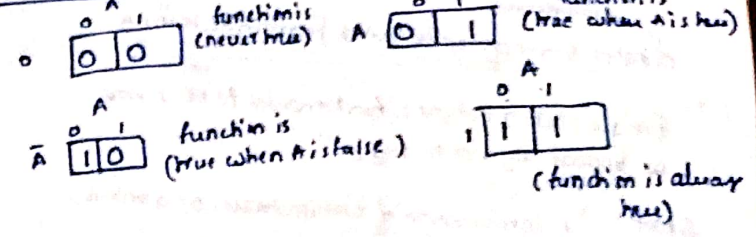 A
0 1
function is
(never true)
0 0 0
0 1
A 0 1
(true when A is true)
A
0 1
Ā 1 0
function is
(true when A is false)
A
0 1
1 1 1
(function is alway
true)